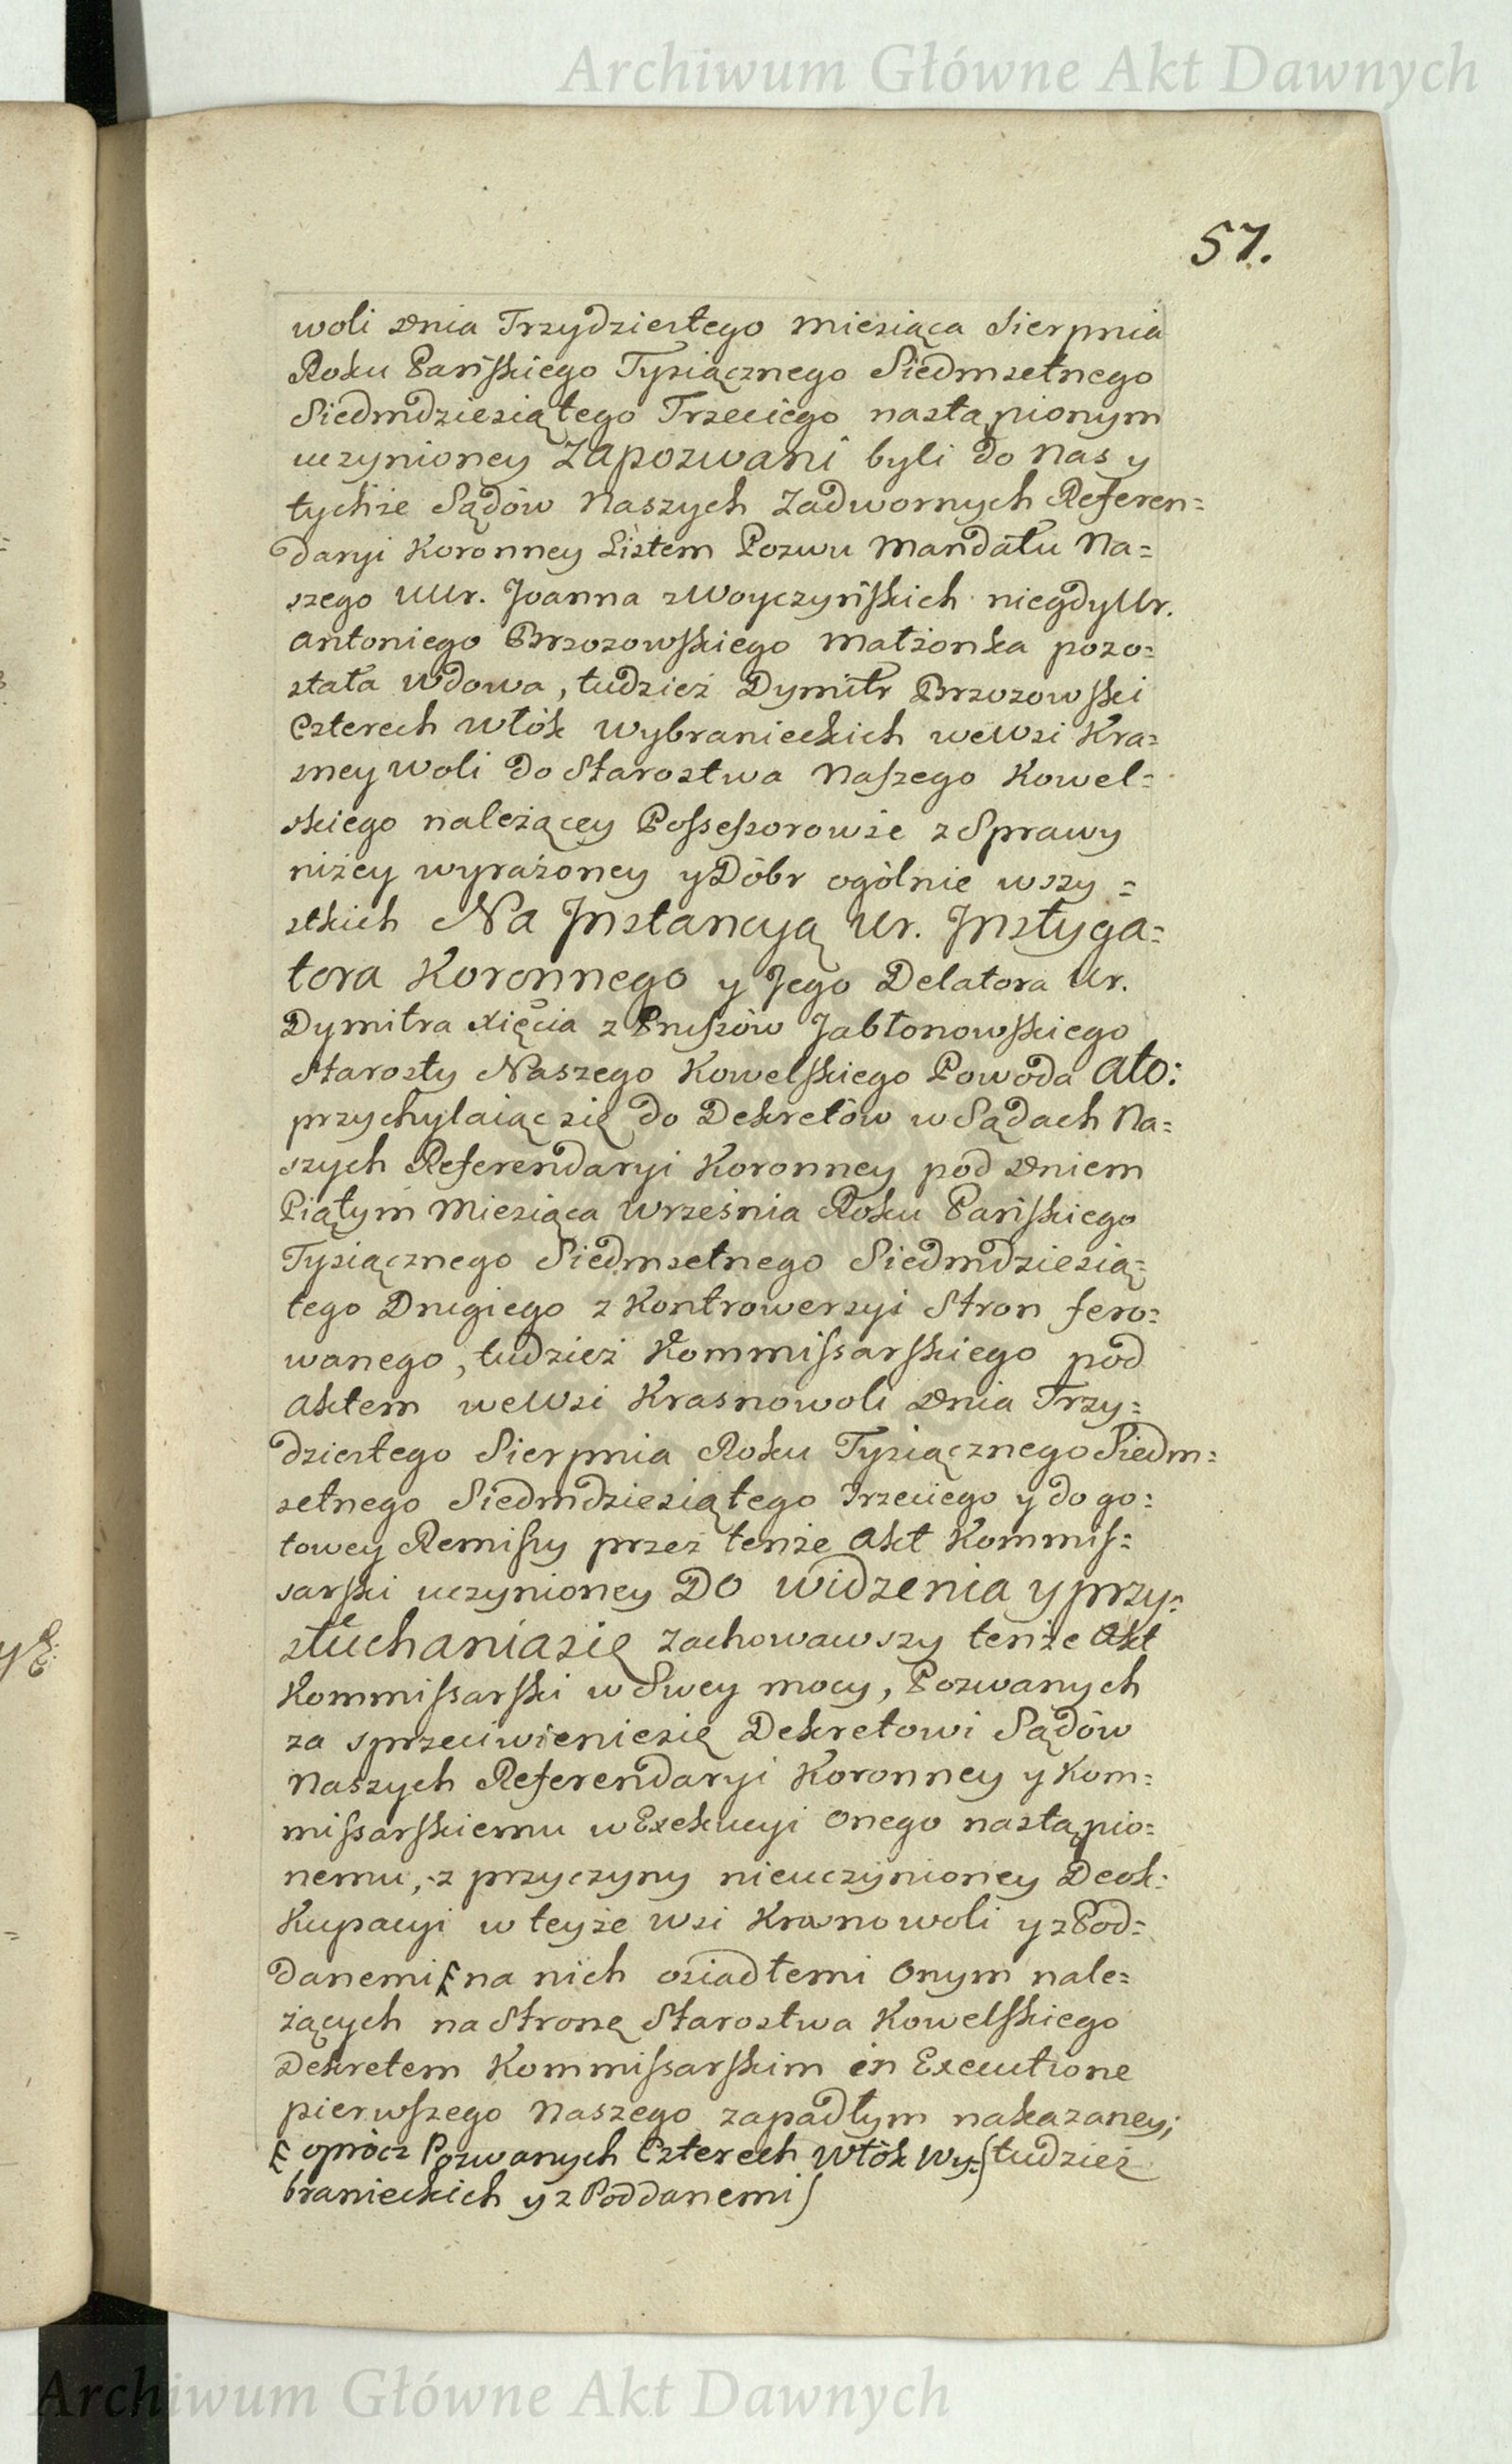 Archiwum Główne Akt Dawnych
57.
woli dnia Trzydziestego miesiąca Sierpnia
Roku Pańskiego Tysiącznego Siedmsetnego
Siedmdziesiątego Trzeciego nastąpionym
uczynioney Zapozwani byli do Nas y
tychże Sądów Naszych Zadwornych Referen=
daryi Koronney Listem Pozwu Mandatu Na=
szego UUr. Joanna z Woyczyńskich niegdy Ur.
Antoniego Brzozowskiego Małżonka pozo=
stała Wdowa, tudzież Dymitr Brzozowski
Czterech Włók Wybranieckich we Wsi Kra=
sney woli do Starostwa Naszego Kowel=
skiego należącey Possessorowie z Sprawy
niżey wyrażoney y Dóbr ogólnie wszy=
stkich Na Instancyą Ur. Instyga=
tora Koronnego y Jego Delatora Ur.
Dymitra Xięcia z Prussów Jabłonowskiego
Starosty Naszego Kowelskiego Powoda Ato:
przychylaiąc się do Dekretów w Sądach Na=
szych Referendaryi Koronney pod dniem
Piątym Miesiąca Września Roku Pańskiego
Tysiącznego Siedmsetnego Siedmdziesią=
tego Drugiego z Kontrowersyi Stron fero=
wanego, tudzież Kommissarskiego pod
Aktem we Wsi Krasnowoli dnia Trzy=
dziestego Sierpnia Roku Tysiącznego Siedm=
setnego Siedmdziesiątego Trzeciego y do go=
towey Remissy przez tenże Akt Kommis=
sarski uczynioney Do widzenia y przy=
słuchania się zachowawszy tenże Akt
Kommissarski w Swey mocy, Pozwanych
za sprzeciwienie się Dekretowi Sądów
Naszych Referendaryi Koronney y Kom=
missarskiemu w Exekucyi Onego nastąpio=
nemu, z przyczyny nieuczynioney Deok=
kupacyi w teyże Wsi Krasnowoli y z Pod=
danemi na nich osiadłemi Onym nale=
żących na Stronę Starostwa Kowelskiego
Dekretem Kommissarskim in Executione
pierwszego Naszego zapadłym nakazaney;
oprócz Pozwanych Czterech Włók Wy= tudzież
branieckich y z Poddanemi
Archiwum Główne Akt Dawnych